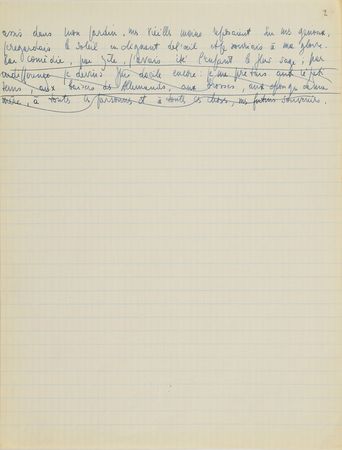 2
assis dans mon jardin, mes vieilles mains reposaient sur mes genoux,
je regardais le soleil en clignant de l'œil et je souriais à ma gloire.
Par comédie, par jeu, j'avais été l'enfant le plus sage, par
indifférence je devins plus docile encore: je me prêtais aux
aux baisers des Allemands, aux brosses, aux éponges de ma
mère, à toutes les personnes et à toutes les choses, mes futurs souvenirs.